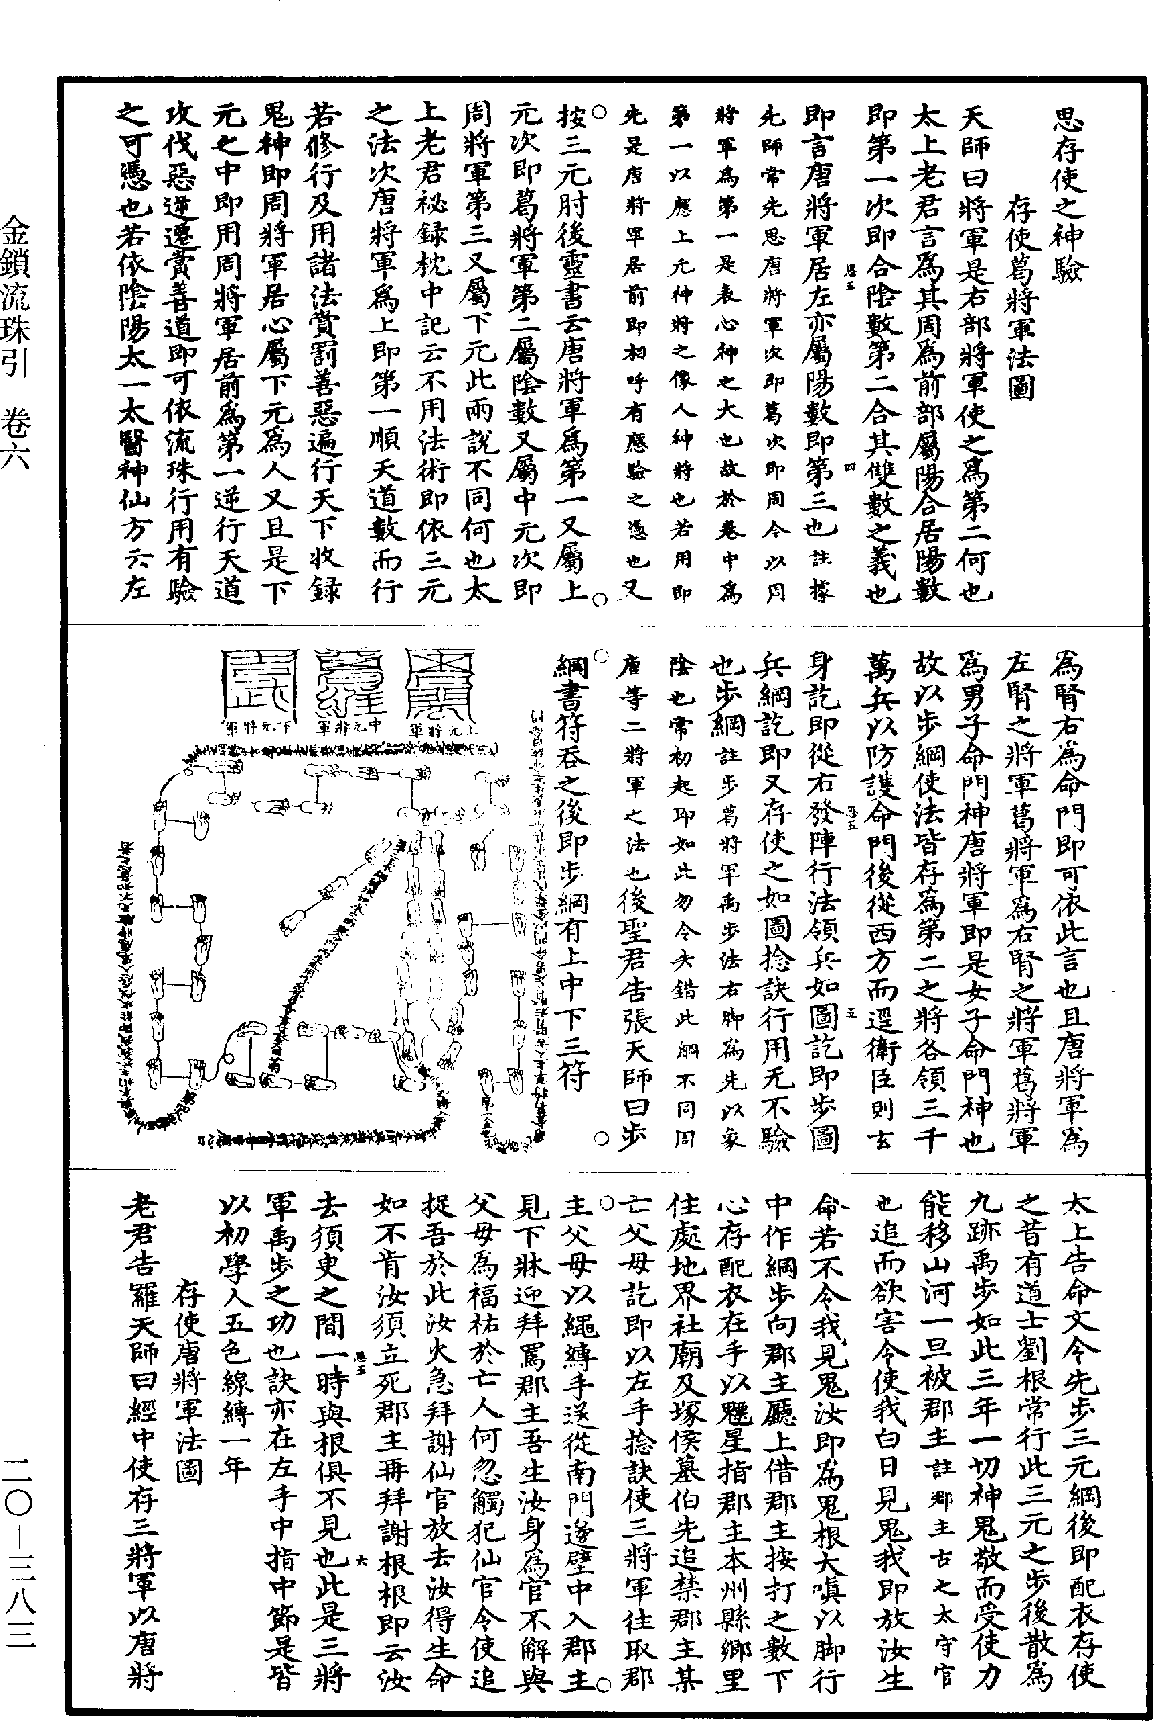 思存使之神驗
存使葛將軍法圖
天師曰將軍是右部將軍使之爲第二何也
太上老君言爲其周爲前部屬陽合居陽數
即第一次即合陰數第二合其雙數之義也
即言唐將軍居左亦屬陽數即第三也註據
先師常先思唐將軍次即葛次即周今以周
將軍爲第一是表心神之大也故於卷中爲
第一以應上元神將之像人神將也若用即
先是唐將軍居前即相呼有應驗之憑也又
按三元肘後靈書云唐將軍爲第一又屬上
元次即葛將軍第二屬陰數又屬中元次即
周將軍第三又屬下元此兩說不同何也太
上老君祕錄枕中記云不用法術即依三元
之法次唐將軍爲上即第一順天道數而行
若修行及用諸法賞罰善惡遍行天下收錄
鬼神即周將軍居心屬下元爲人又且是下
元之中即用周將軍居前爲第一逆行天道
攻伐惡逆遷賞善道即可依流珠行用有驗
之可憑也若依陰陽太一太醫神仙方云左
爲腎右爲命門即可依此言也且唐將軍爲
左腎之將軍葛將軍爲右腎之將軍葛將軍
爲男子命門神唐將軍即是女子命門神也
故以步綱使法皆存爲第二之將各領三千
萬兵以防護命門後從西方而還衛臣則玄
身訖即從右發陣行法領兵如圖訖即步圖
兵綱訖即又存使之如圖捻訣行用无不驗
也步綱註步葛將軍禹步法右脚爲先以象
陰也常初起耶如此勿令失錯此解不同周
唐等二將軍之法也後聖君告張天師曰步
綱書符吞之後即步綱有上中下三符
上元將軍
中元將軍
下元將軍
太上告命文今先步三元綱後即配衣存使
之昔有道士劉根常行此三元之步後散爲
九跡禹步如此三年一切神鬼敬而受使力
能移山河一旦被郡主註郡主古之太守官
也追而欲害今使我白日見鬼我即放汝生
命若不令我見鬼汝即爲鬼根大嗔以脚行
中作綱步向郡主廳上借郡主按打之數下
心存配衣在手以魁星指郡主本州縣鄉里
住處地界社廟及塚侯墓伯先追禁郡主某
亡父母訖即以左手捻訣使三將軍往取郡
主父母以繩縛手送從南門遂壁中入郡主
見下牀迎拜罵郡主吾生汝身爲官不解與
父母爲福祐於亡人何忽觸犯仙官令使追
捉吾於此汝火急拜謝仙官放去汝得生命
如不肯汝須立死郡主再拜謝根根即云汝
去須臾之間一時與根俱不見也此是三將
軍禹步之功也訣亦在左手中指中節是皆
以初學人五色線縛一年
存使唐將軍法圖
老君告羅天師曰經中使存三將軍以唐將
金鎖流珠引 卷六
二〇—三八三